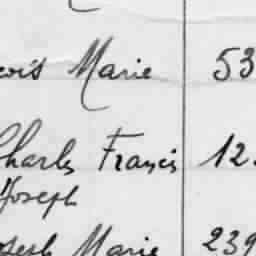 çois Marie 53
Charles Francis 12
Joseph
Joseph Marie 239